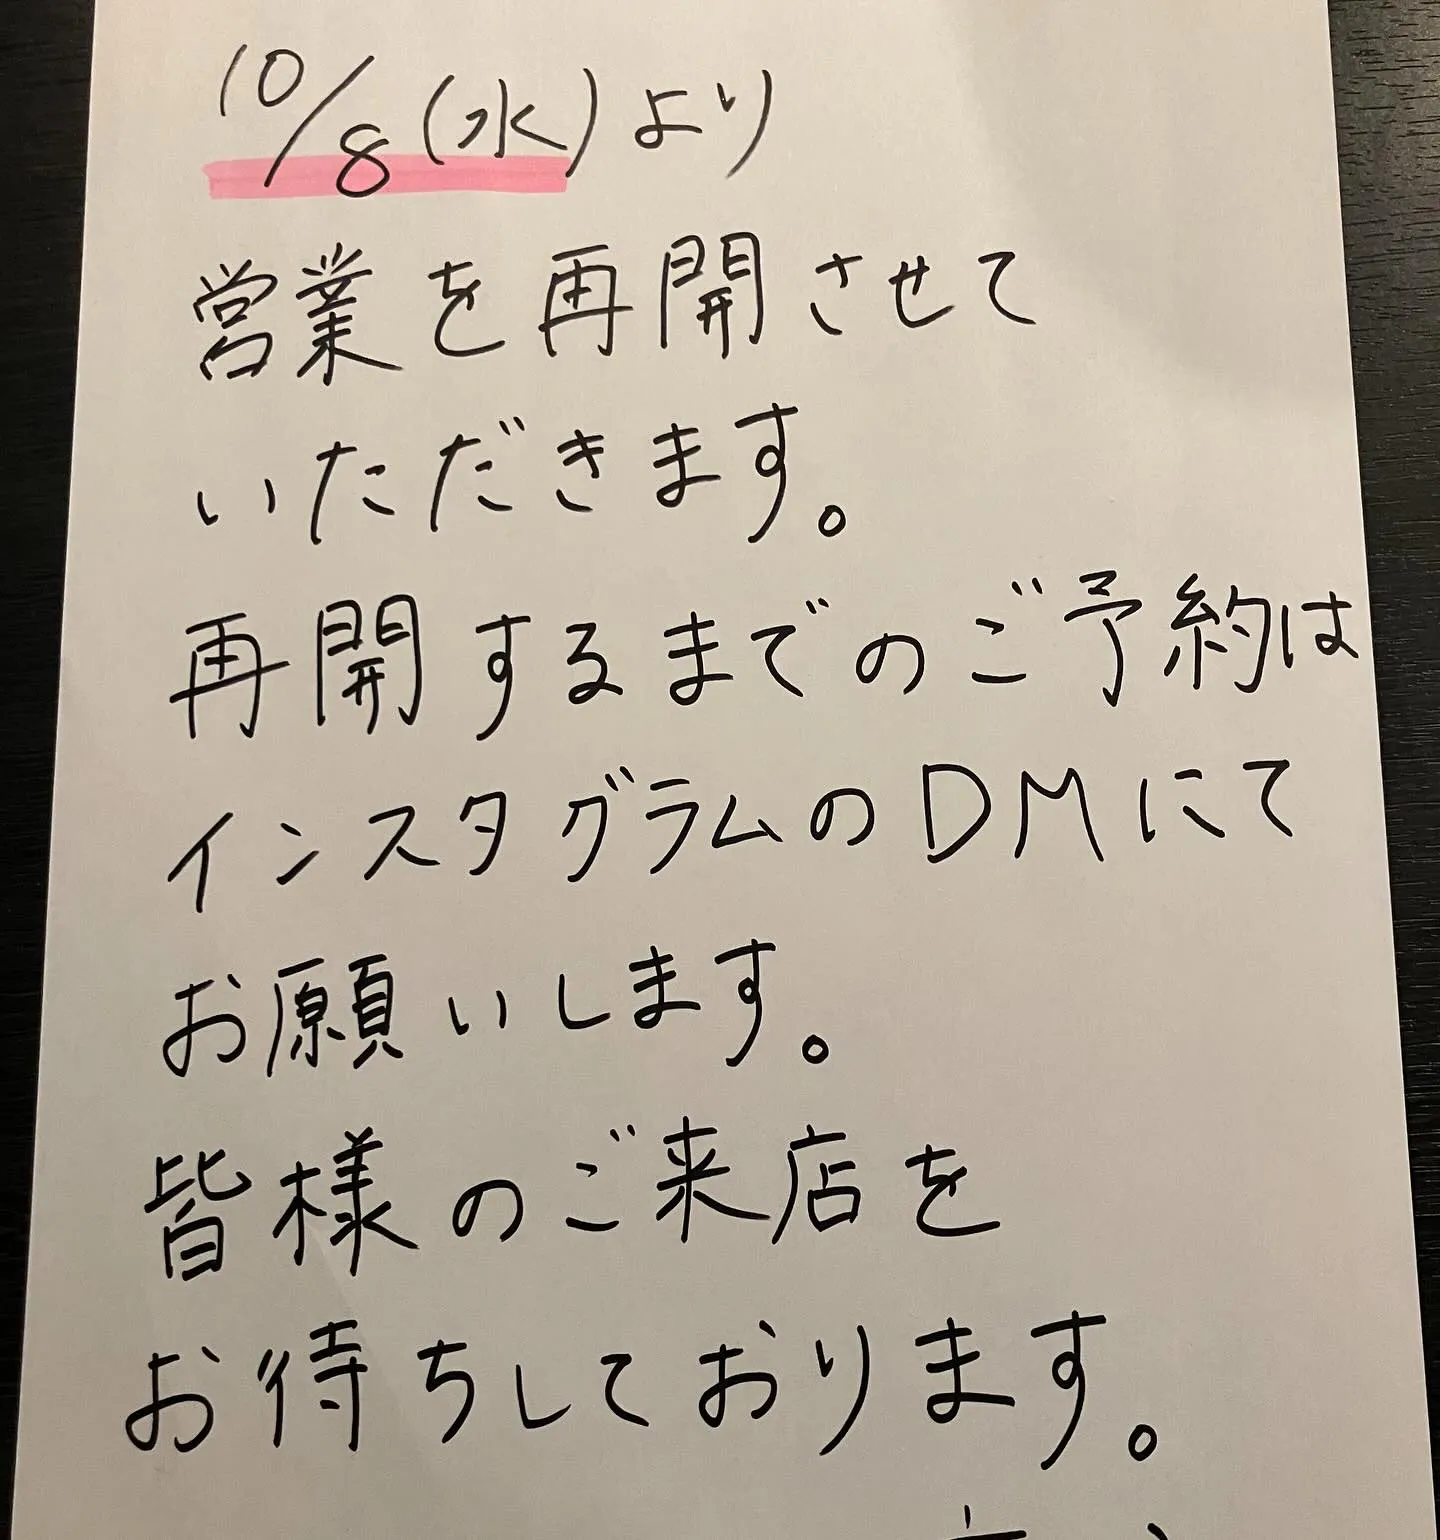 10/8(水)より
営業を再開させて
いただきます。
再開するまでのご予約は
インスタグラムのDMにて
お願いします。
皆様のご来店を
お待ちしております。